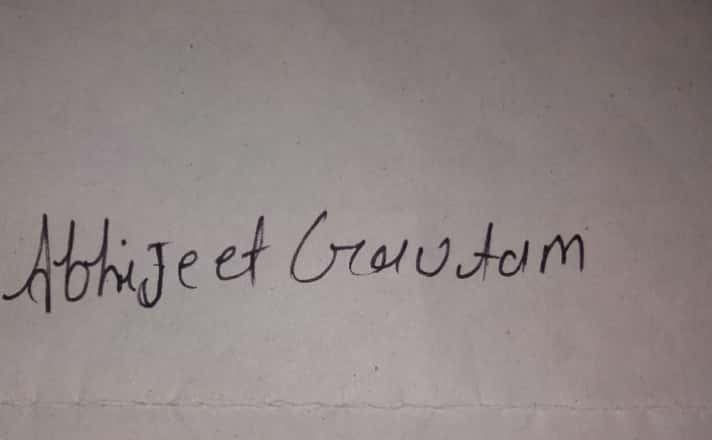 Abhijeet Gautam